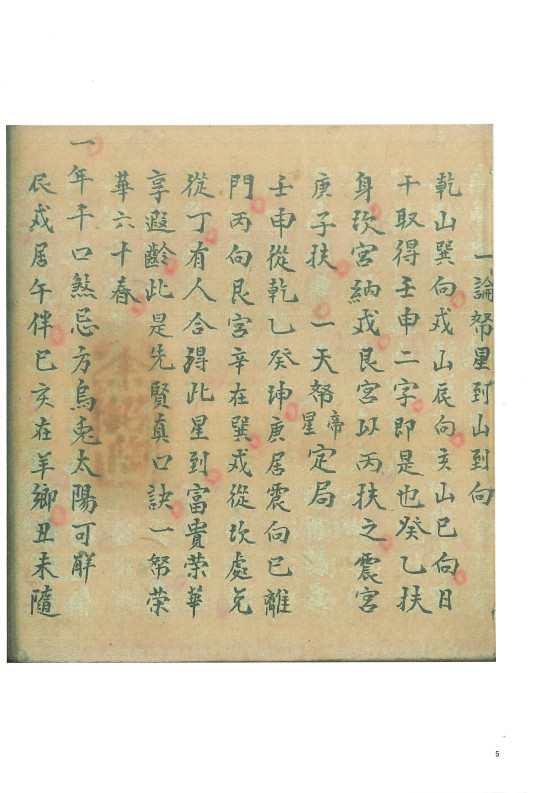 一論帑星到山到向
乾山巽向戌山辰向亥山巳向日
干取得壬申二字即是也癸乙扶
身坎宮納戎艮宮以丙扶之震宮
庚子扶 一天帑星帝定局
壬申從乾乙癸坤庚居震向巳離
門丙向艮宮辛在巽戎從坎處兑
從丁有人合得此星到富貴榮華
享遐齡此是先賢真口訣一帑榮
華六十春
一年干口煞忌方烏兎太陽可解
辰戎居午伴巳亥在羊鄉丑未隨
5